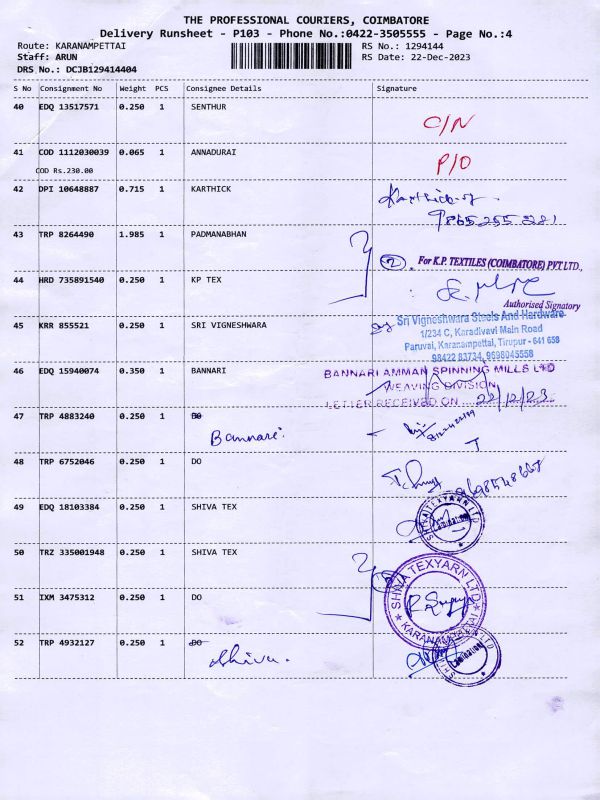 THE PROFESSIONAL COURIERS, COIMBATORE
Delivery Runsheet - P103 - Phone No.:0422-3505555 - Page No.:4
Route: KARANAMPETTAI RS No.: 1294144
Staff: ARUN RS Date: 22-Dec-2023
DRS No.: DCJB129414404
S No Consignment No Weight PCS Consignee Details Signature
40 EDQ 13517571 0.250 1 SENTHUR
C/N
41 COD 1112030039 0.065 1 ANNADURAI
P/O
COD Rs.230.00
42 DPI 10648887 0.715 1 KARTHICK
Karthick
9865255221
43 TRP 8264490 1.985 1 PADMANABHAN
2 For K.P. TEXTILES (COIMBATORE) PVT LTD.,
44 HRD 735891540 0.250 1 KP TEX
Authorised Signatory
45 KRR 855521 0.250 1 SRI VIGNESHWARA
Sri Vigneshwara Steels And Hardware
1/234 C, Karadivavi Main Road
Paruvai, Karanampettai, Tirupur - 641 658
98422 83734, 9698045558
46 EDQ 15940074 0.350 1 BANNARI
BANNARI AMMAN SPINNING MILLS LTD
WEAVING DIVISION
LETTER RECEIVED ON 22/12/23
47 TRP 4883240 0.250 1 DO
Bannari
48 TRP 6752046 0.250 1 DO
49 EDQ 18103384 0.250 1 SHIVA TEX
SHIVA TEXYARN LTD
Lamination
50 TRZ 335001948 0.250 1 SHIVA TEX
SHIVA TEXYARN LTD
KARANAMPATTAI
51 IXM 3475312 0.250 1 DO
52 TRP 4932127 0.250 1 DO
Shiva.
Lamination